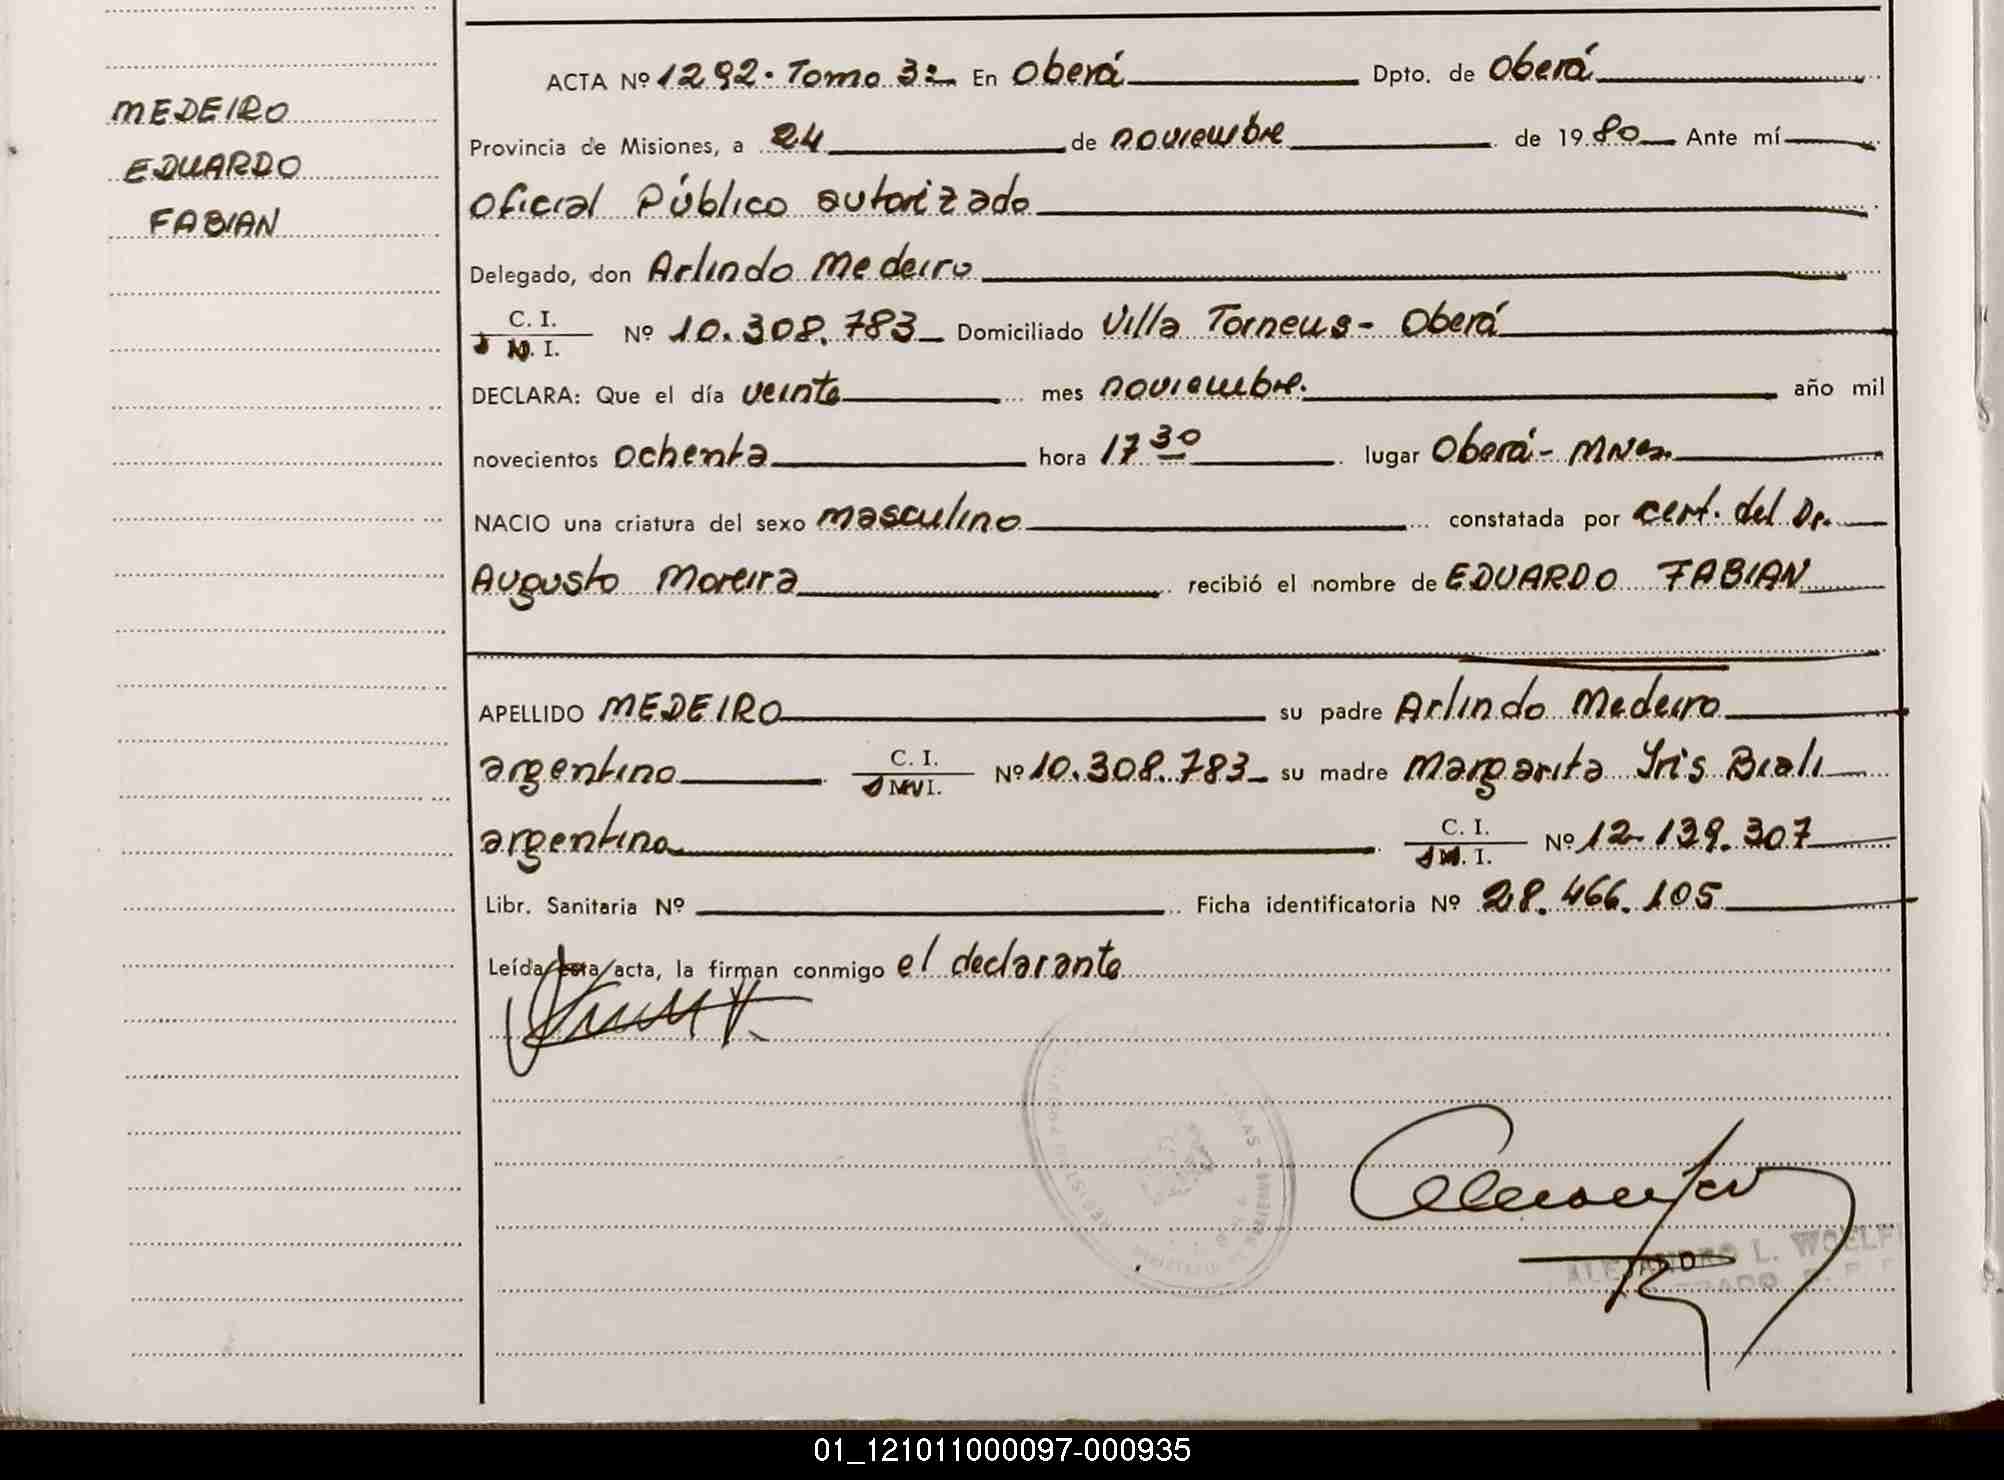 MEDEIRO
EDUARDO
FABIAN
ACTA Nº 1292. Tomo 3º En Oberá Dpto. de Oberá
Provincia de Misiones, a 24 de noviembre de 1980 Ante mí
Oficial Público autorizado
Delegado, don Arlindo Medeiro
C. I.
M. I. Nº 10.308.783 Domiciliado Villa Torneus - Oberá
DECLARA: Que el día veinte mes noviembre. año mil
novecientos ochenta hora 17 30 lugar Oberá - Mnes.
NACIO una criatura del sexo masculino constatada por cert. del Dr.
Augusto Moreira recibió el nombre de EDUARDO FABIAN
APELLIDO MEDEIRO su padre Arlindo Medeiro
argentino C. I. Nº 10.308.783 su madre Margarita Yris Biali
argentina C. I.
M. I. Nº 12.139.307
Libr. Sanitaria Nº Ficha identificatoria Nº 28.466.105
Leída esta acta, la firman conmigo el declarante
ALEJANDRO L. WOELF
01_121011000097-000935